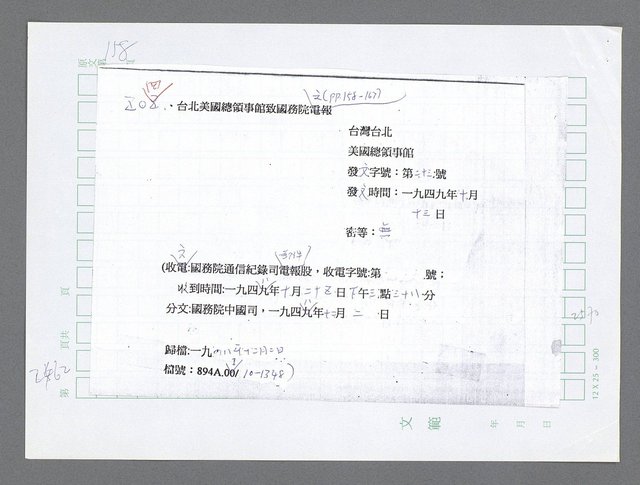 158
原文
文(pp.158-167)
、台北美國總領事館致國務院電報
台灣台北
美國總領事館
發文字號：第二十三號
發文時間：一九四九年十月
十三日
密等：
(收電:國務院通信紀錄司電報股，收電字號:第 號；
收到時間:一九四九年十月二十五日下午三點三十八分
分文:國務院中國司，一九四九年十二月二日
歸檔:一九 年十二月二日
檔號：894A.00/10-1348)
頁
頁共
第
2462
2570
12 X 25 － 300
文 範
年 月 日